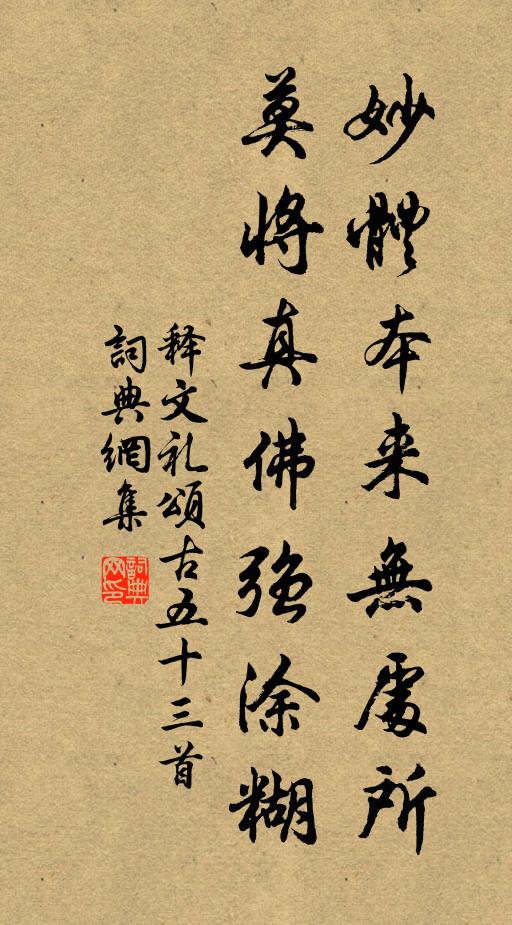 妙體本来無處所
莫将真佛强涂糊
释文礼頌古五十三首
詞典網集
詞典网印